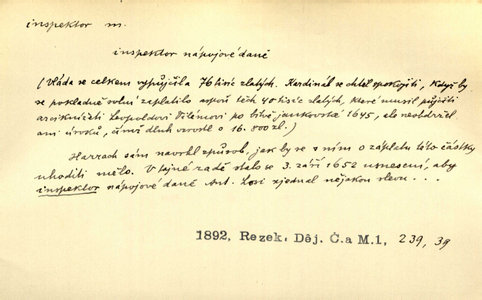 inspektor m.
inspektor nápojové daně
(Vláda se celkem vypůjčila 76 tisíc zlatých. Kardinál se chtěl spokojiti, kdyby
se pokladně solní zaplatilo aspoň těch 40 tisíc zlatých, které musil půjčiti
arciknížeti Leopoldovi Vilémovi po bitvě jankovské 1645, ale neobdržel
ani úroků, čímž dluh vzrostl o 16.800 zl.)
Harrach sám navrhl způsob, jak by se s ním o záplatu této částky
uhoditi mělo. V tajné radě stalo se 3. září 1652 usnesení, aby
inspektor nápojové daně Ant. Losi zjednal nějakou slevu . . .
1892, Rezek, Děj. Č.a M.1, 239, 39